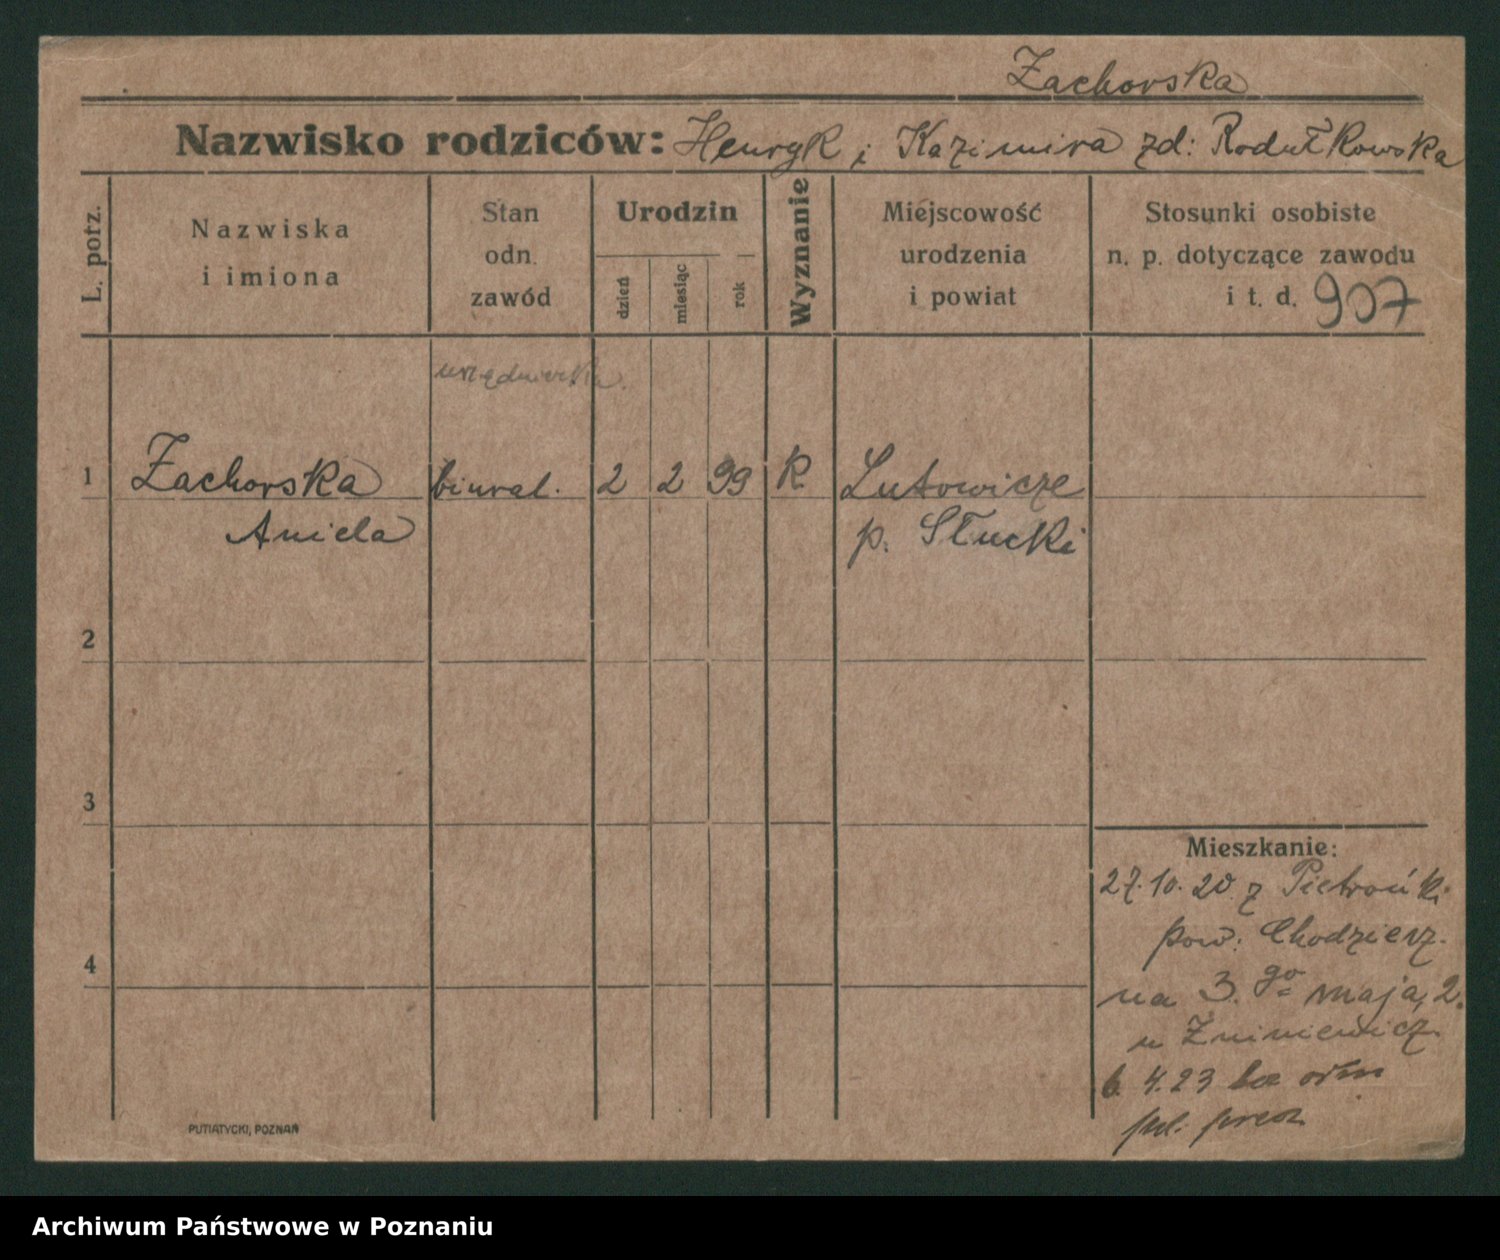 Zachorska
Nazwisko rodziców: Henryk i Kazimira zd: Rodułkowska
L. potz.
Nazwiska
i imiona
Stan
odn.
zawód
Urodzin
dzień
miesiąc
rok
Wyznanie
Miejscowość
urodzenia
i powiat
Stosunki osobiste
n. p. dotyczące zawodu
i t. d. 907
urzędniczka.
1 Zachorska biural. 2 2 99 k Lutowicze
Aniela p. Słucki
2
3
Mieszkanie:
27.10.20 z Pietronki
pow: Chodzierz.
4
na 3. go maja, 2.
u Żniniewicz.
6. 4.23
PUTIATYCKI, POZNAŃ
Archiwum Państwowe w Poznaniu